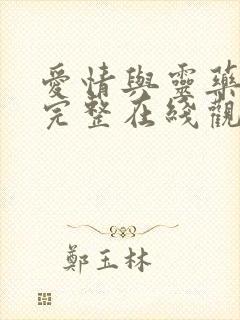 愛情與靈藥
完整在綫觀
鄭玉林